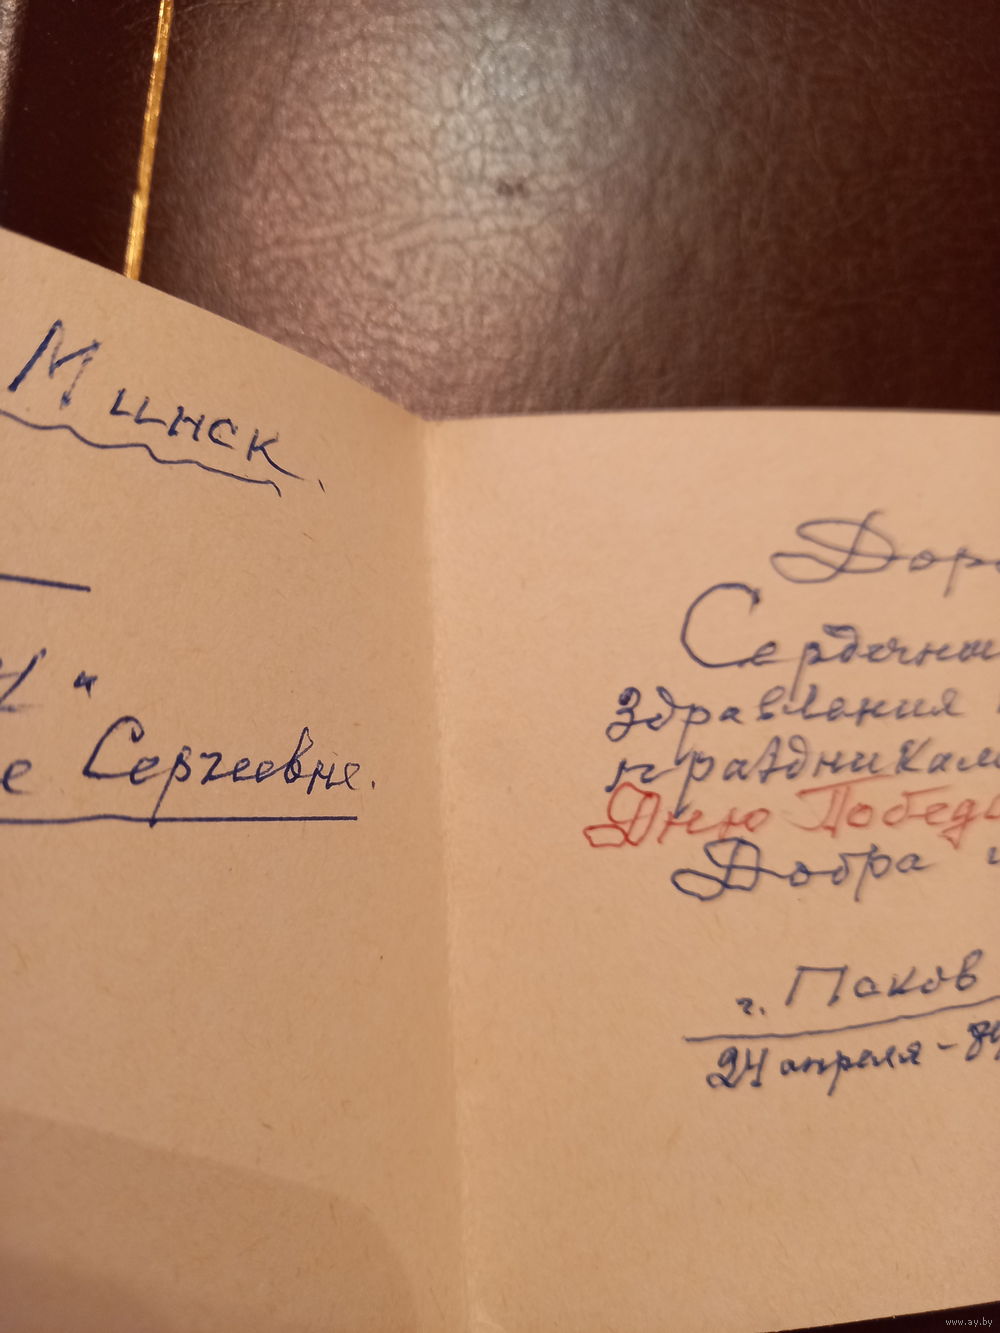 Минск.
"
е Сергеевне.
Доро
Сердечны
здравления
праздниками
Дню Победы
Добра
г. Псков
24 апреля - 89
www.ay.by